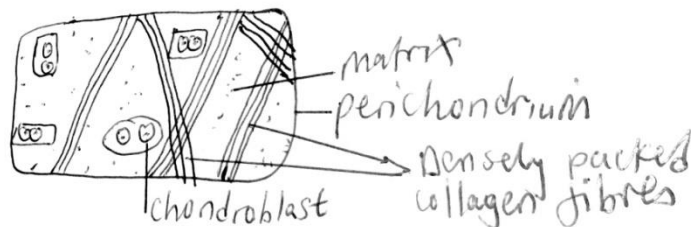 matrix
perichondrium
Densely packed
collagen fibres
chondroblast